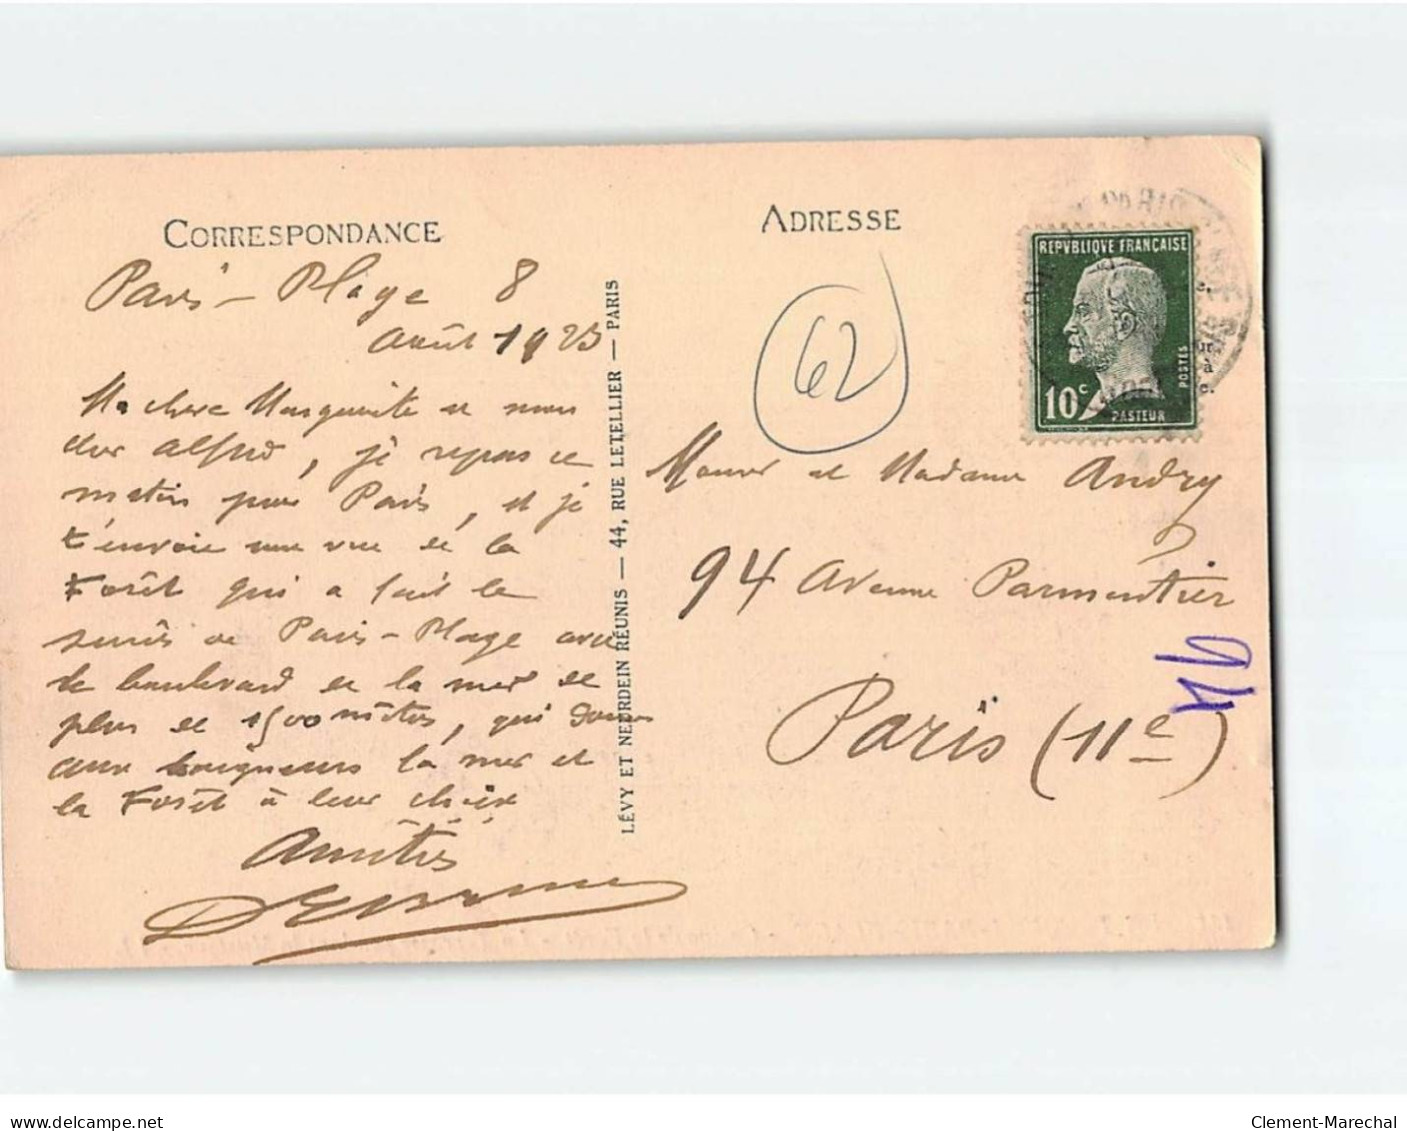 CORRESPONDANCE
Paris-Plage 8
août 1923
Ma chere Marguerite et mon
cher Alfred, je repars ce
matin pour Paris, et je
t'envoie une vue de la
Forêt qui a fait le
succès de Paris-Plage avec
le boulevard de la mer de
plus de 1500 mètres, qui donne
aux baigneurs la mer et
la Forêt à leur choix
Amitiés
LÉVY ET NEURDEIN RÉUNIS — 44, RUE LETELLIER — PARIS
ADRESSE
62
REPVBLIQUE FRANÇAISE
10c
POSTES
PASTEUR
PARIS
Monsr et Madame Andry
94 Avenue Parmentier
Paris (11e)
delcampe.net
Clement-Marechal